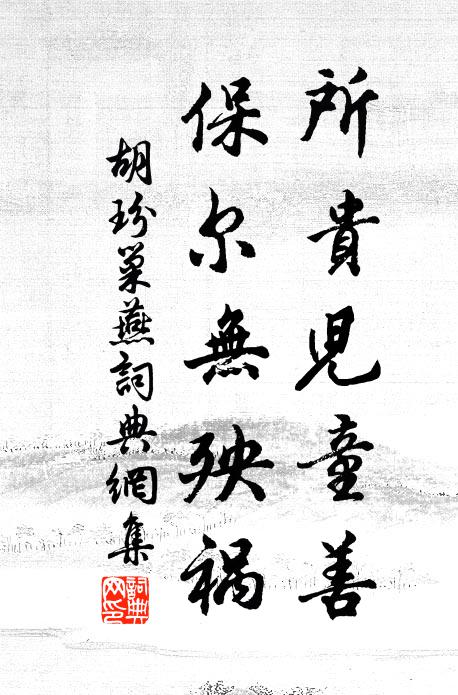 所貴児童善
保尔無殃禍
胡玢巢燕詞典網集
詞典
网印